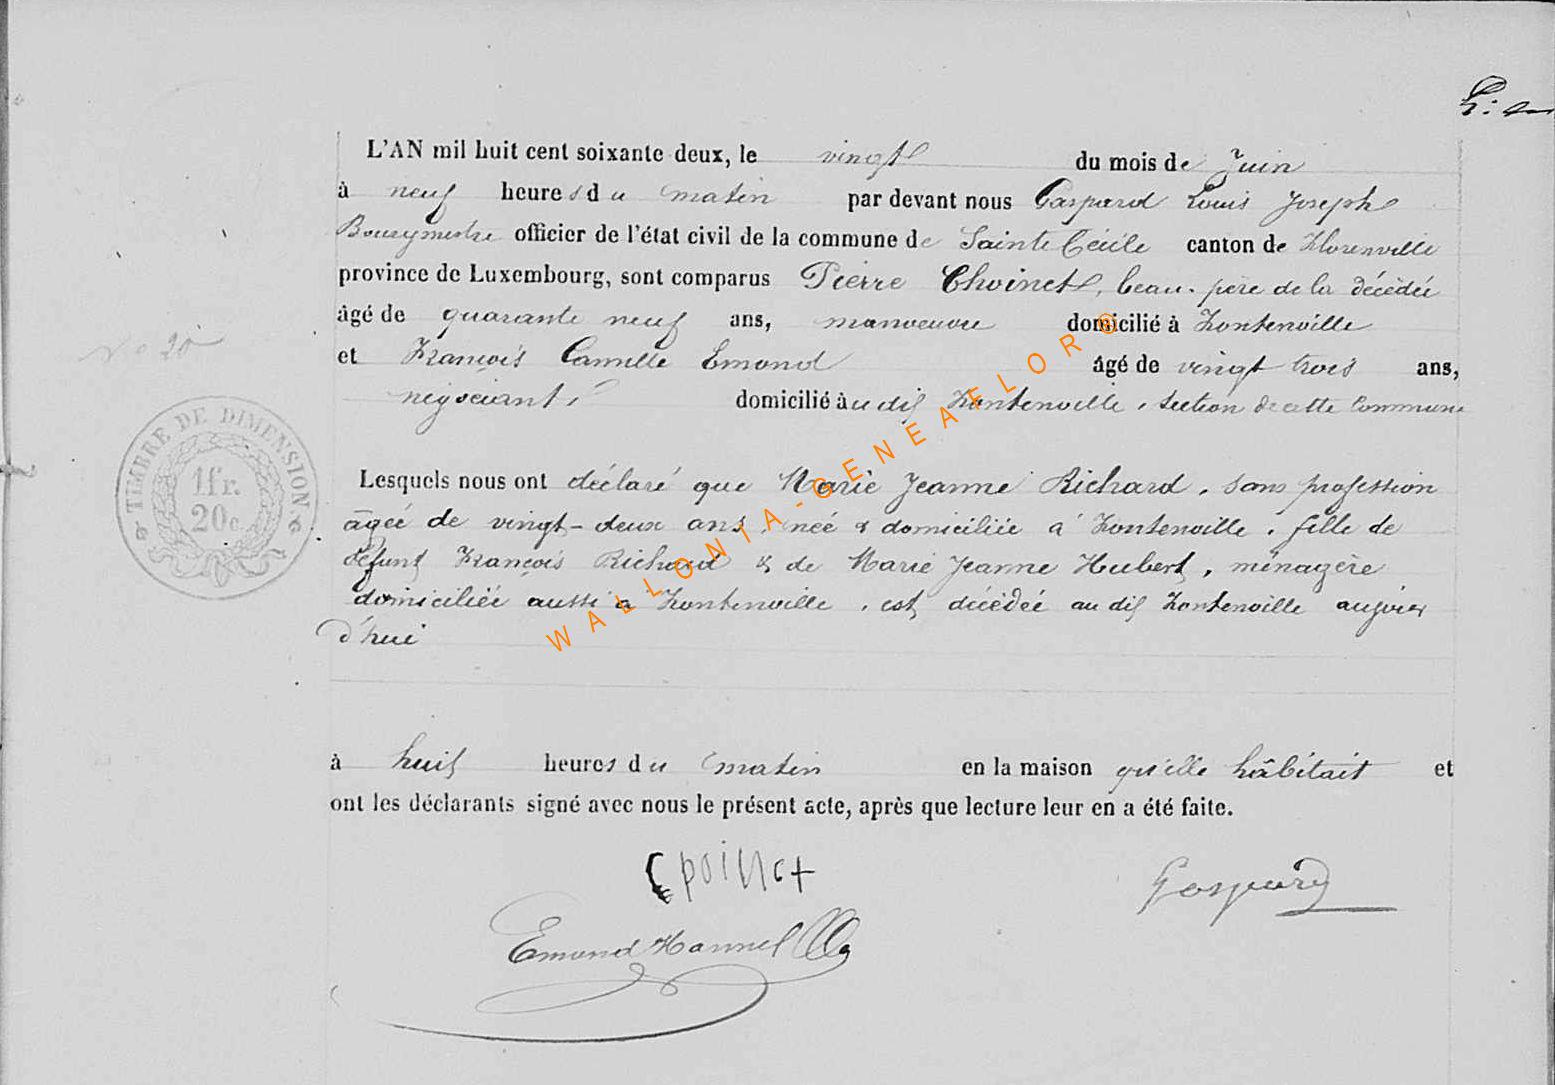 L'AN mil huit cent soixante deux, le vingt du mois de Juin
à neuf heures du matin par devant nous Gaspard Louis Joseph
Bourgmestre officier de l'état civil de la commune de Sainte Cécile canton de Florenville
province de Luxembourg, sont comparus Pierre Choinet, beau-père de la décédée
âgé de quarante neuf ans, manoeuvre domicilié à Fontenoille
et François Camille Emond âgé de vingt trois ans,
négociant, domicilié audit Fontenoille, section de cette commune
N° 20
TIMBRE DE DIMENSION
1fr.
20c.
Lesquels nous ont déclaré que Marie Jeanne Richard, sans profession
âgée de vingt-deux ans, née & domiciliée à Fontenoille, fille de
défunt François Richard & de Marie Jeanne Hubert, ménagère
domiciliée aussi à Fontenoille, est décédée audit Fontenoille aujour
d'hui
à huit heures du matin en la maison qu'elle habitait et
ont les déclarants signé avec nous le présent acte, après que lecture leur en a été faite.
Choinet
Gaspard
Emond
WALLONIA-GENEAFLOR©